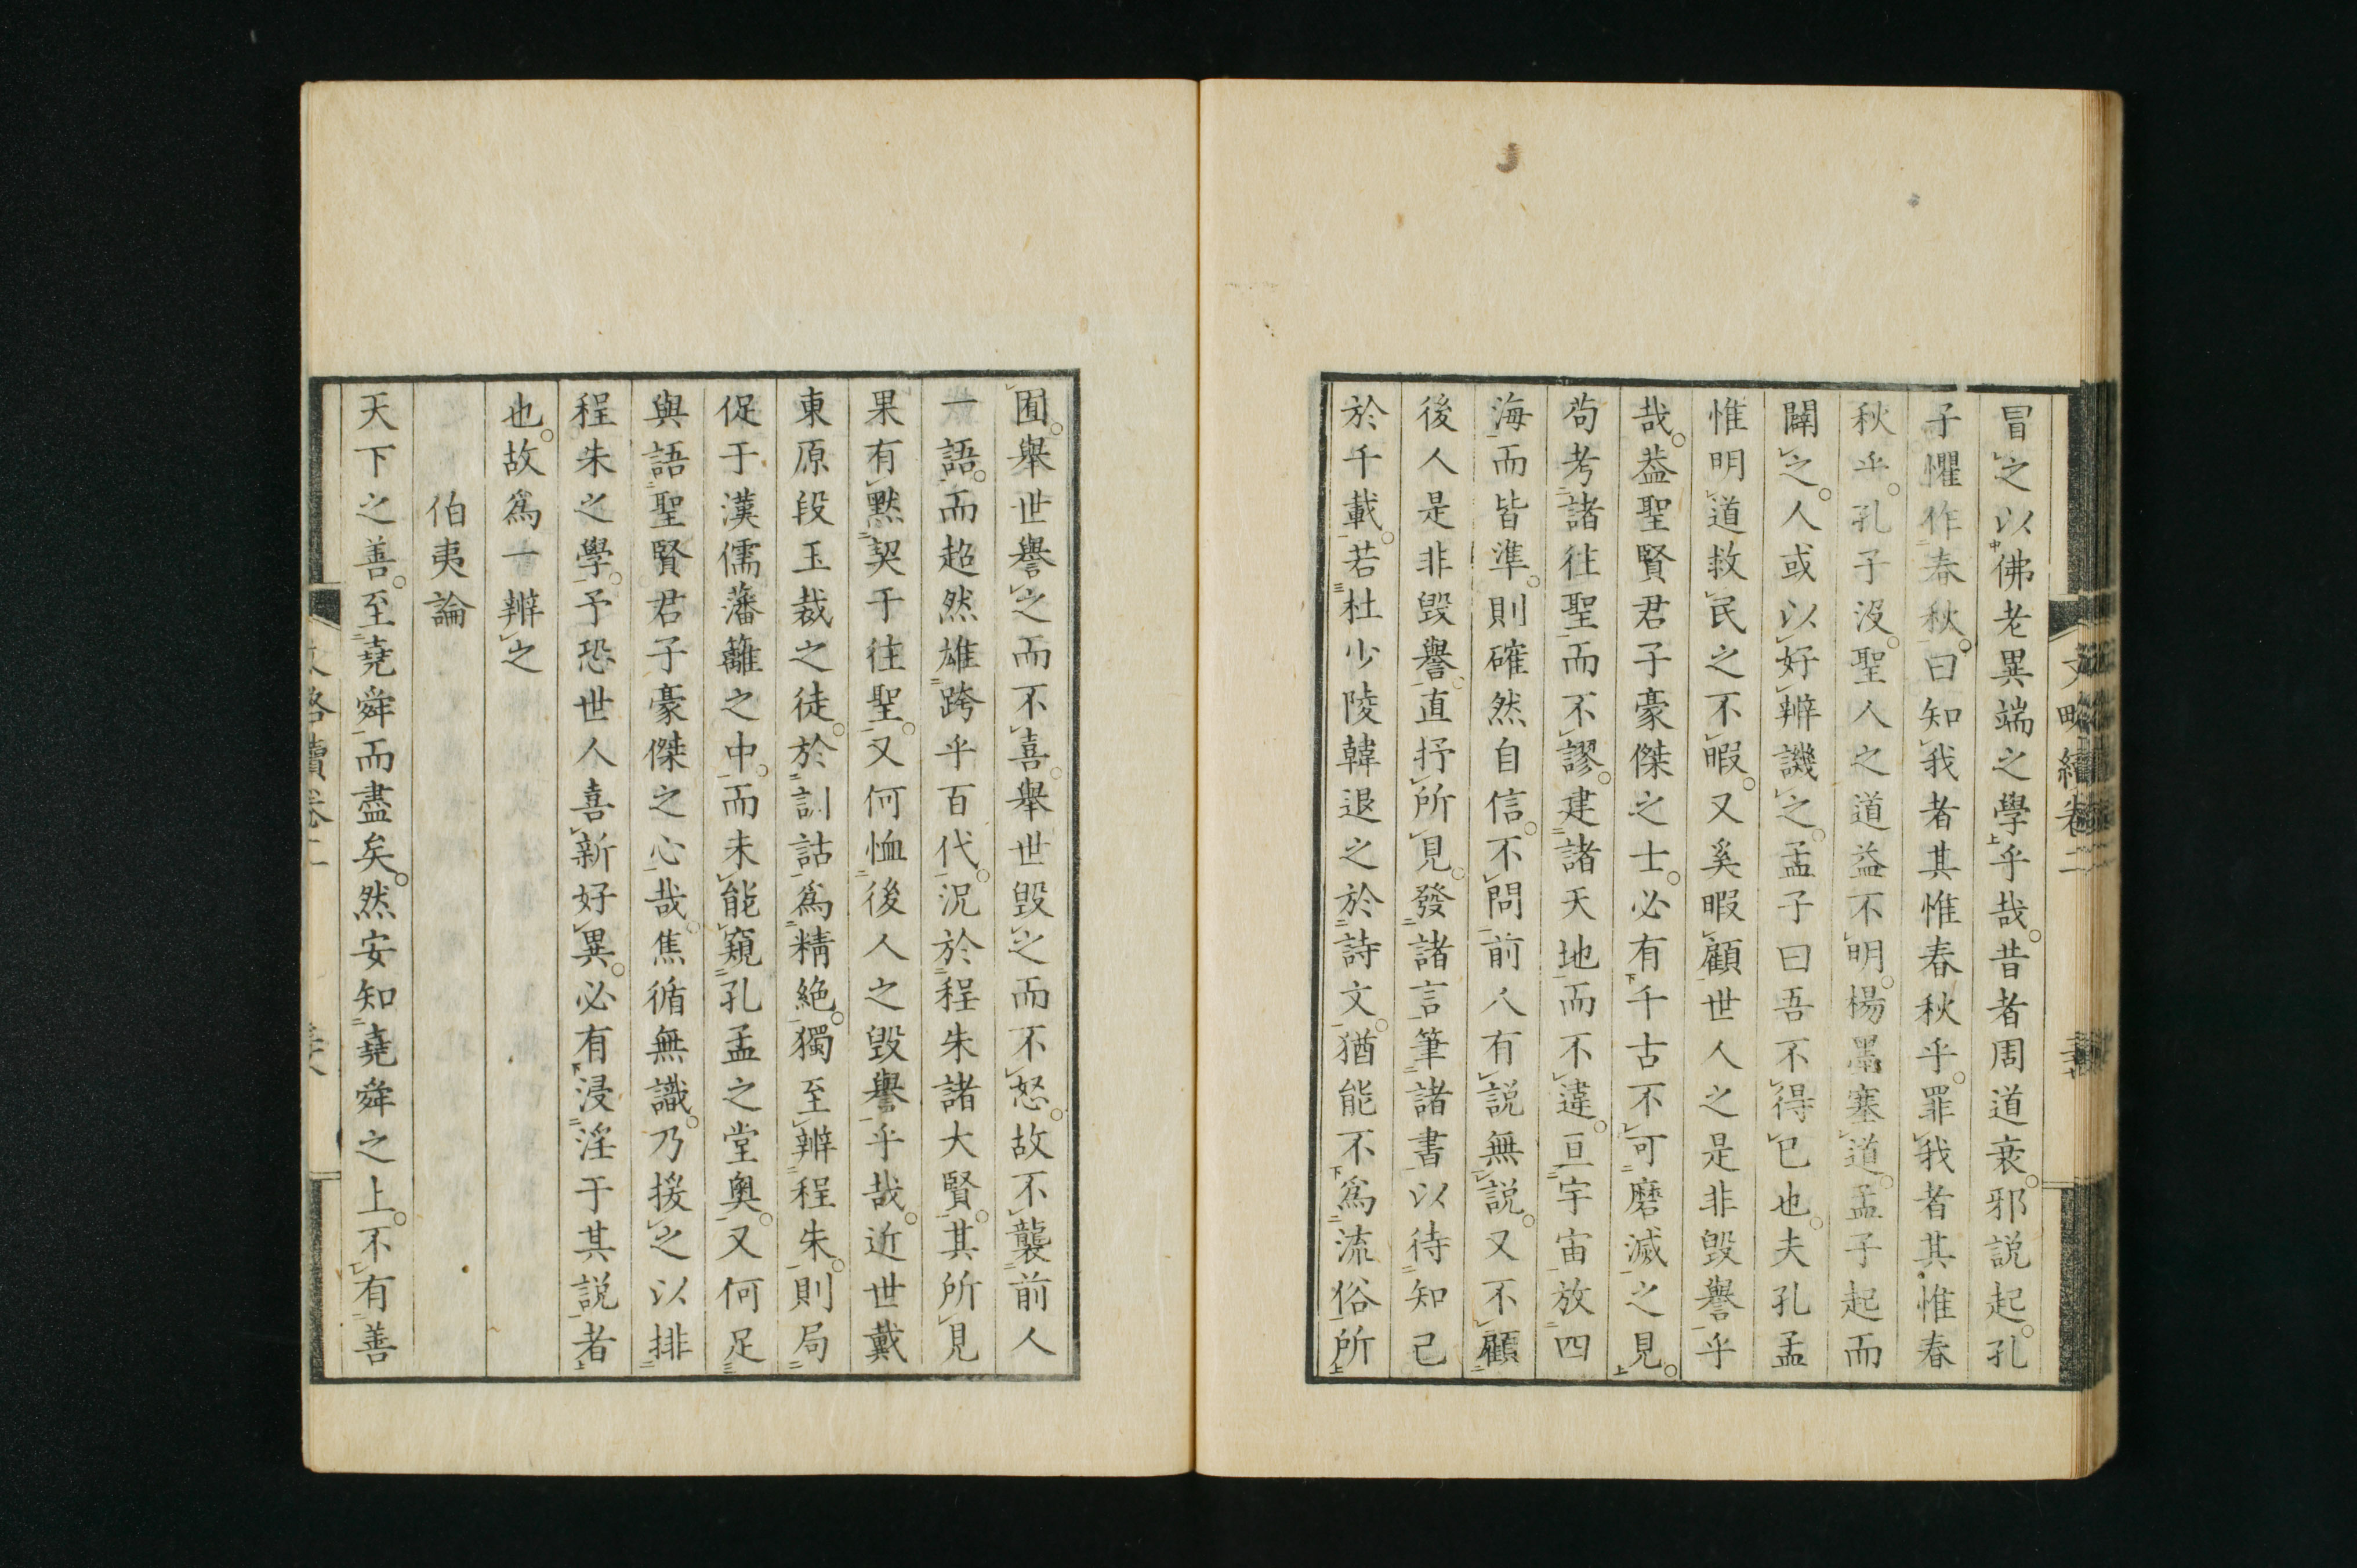 冒之以佛老異端之學乎哉。昔者周道衰。邪説起。孔
子懼作春秋。曰知我者其惟春秋乎。罪我者其惟春
秋乎。孔子沒。聖人之道益不明。楊墨塞道。孟子起而
闢之。人或以好辨譏之。孟子曰吾不得已也。夫孔孟
惟明道救民之不暇。又奚暇顧世人之是非毀譽乎
哉。葢聖賢君子豪傑之士。必有千古不可磨滅之見。
苟考諸往聖而不謬。建諸天地而不違。亘宇宙放四
海而皆準。則確然自信。不問前人有説無説。又不顧
後人是非毀譽。直抒所見。發諸言筆諸書以待知己
於千載。若杜少陵韓退之於詩文。猶能不爲流俗所
囿。舉世譽之而不喜。舉世毀之而不怒。故不襲前人
一語。而超然雄跨乎百代。況於程朱諸大賢。其所見
果有默契于往聖。又何恤後人之毀譽乎哉。近世戴
東原段玉裁之徒。於訓詁爲精絶。獨至辨程朱。則局
促于漢儒藩籬之中。而未能窺孔孟之堂奥。又何足
與語聖賢君子豪傑之心哉。焦循無識。乃援之以排
程朱之學。予恐世人喜新好異。必有浸淫于其説者
也。故爲一辨之
伯夷論
天下之善。至堯舜而盡矣。然安知堯舜之上。不有善
文略續卷二